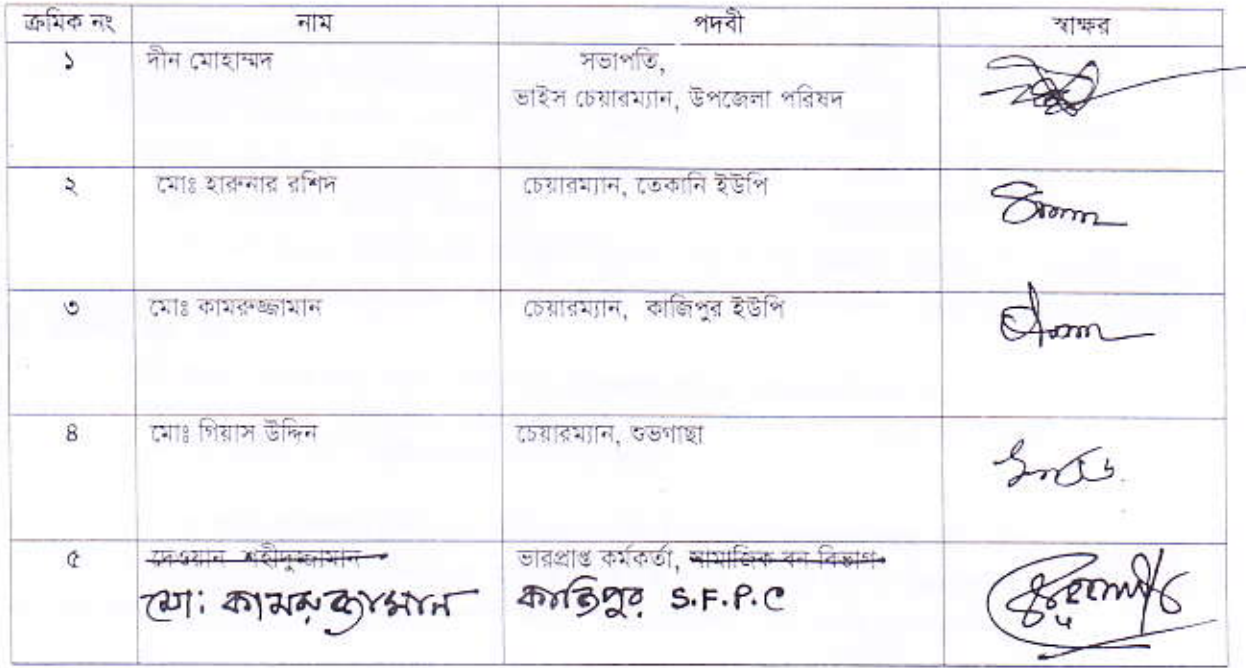 ক্রমিক নং নাম পদবী স্বাক্ষর
১ দীন মোহাম্মদ সভাপতি,
ভাইস চেয়ারম্যান, উপজেলা পরিষদ
২ মোঃ হারুনার রশিদ চেয়ারম্যান, তেকানি ইউপি
৩ মোঃ কামরুজ্জামান চেয়ারম্যান, কাজিপুর ইউপি
৪ মোঃ গিয়াস উদ্দিন চেয়ারম্যান, শুভগাছা
৫ দেওয়ান শহীদুজ্জামান ভারপ্রাপ্ত কর্মকর্তা, সামাজিক বন বিভাগ
মো: কামরুজ্জামান কাজিপুর S.F.P.C